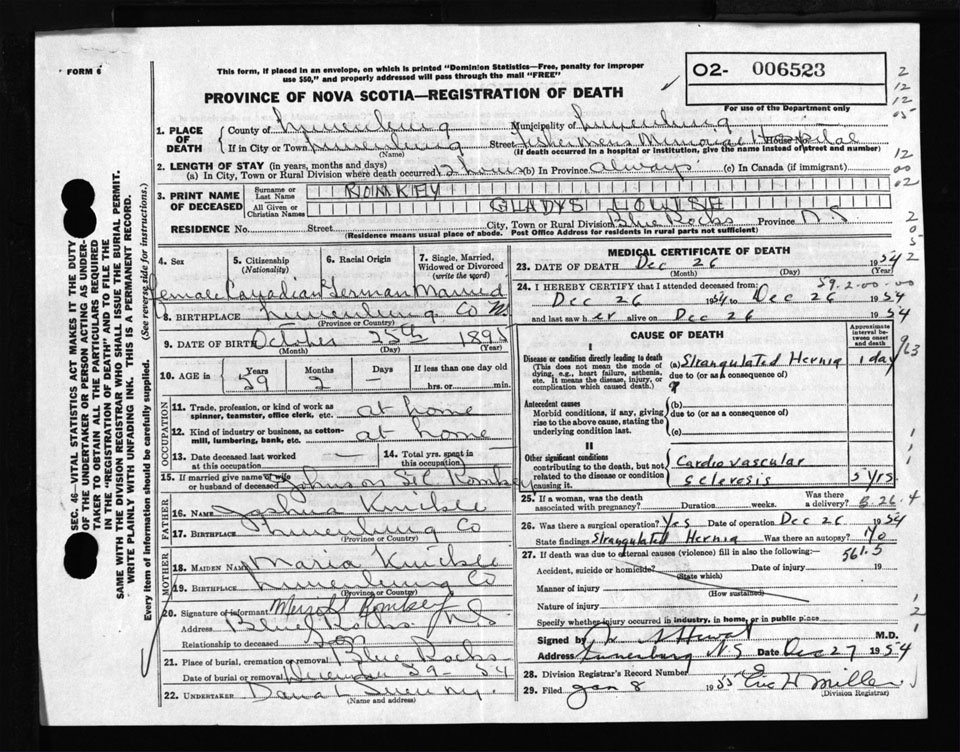 FORM 6
This form, if placed in an envelope, on which is printed "Dominion Statistics—Free, penalty for improper
use $50," and properly addressed will pass through the mail "FREE"
O2- 006523
For use of the Department only
PROVINCE OF NOVA SCOTIA—REGISTRATION OF DEATH
1. PLACE OF DEATH
County of Lunenburg Municipality of Lunenburg
If in City or Town Lunenburg Street Fishermens Memorial Hospital House No.
(Name) (If death occurred in a hospital or institution, give the name instead of street and number)
2. LENGTH OF STAY (in years, months and days)
(a) In City, Town or Rural Division where death occurred 12 hours (b) In Province always (c) In Canada (if immigrant)
3. PRINT NAME OF DECEASED
Surname or Last Name ROMKEY
All Given or Christian Names GLADYS LOUISE
RESIDENCE No. Street City, Town or Rural Division Blue Rocks Province N.S.
(Residence means usual place of abode. Post Office Address for residents in rural parts not sufficient)
4. Sex 5. Citizenship (Nationality) 6. Racial Origin 7. Single, Married, Widowed or Divorced (write the word)
Female Canadian German Married
8. BIRTHPLACE Lunenburg Co N.S.
(Province or Country)
9. DATE OF BIRTH October 25th 1895
(Month) (Day) (Year)
10. AGE in Years Months Days If less than one day old
59 2 – hrs. or min.
OCCUPATION
11. Trade, profession, or kind of work as spinner, teamster, office clerk, etc. at home
12. Kind of industry or business, as cotton-mill, lumbering, bank, etc. at home
13. Date deceased last worked at this occupation — 14. Total yrs. spent in this occupation —
15. If married give name of wife or husband of deceased Johnson Romkey
FATHER
16. Name Joshua Knickle
17. Birthplace Lunenburg Co
(Province or Country)
MOTHER
18. Maiden Name Maria Knickle
19. Birthplace Lunenburg Co
(Province or Country)
20. Signature of informant Romkey
Address Blue Rocks NS
Relationship to deceased Son
21. Place of burial, cremation or removal Blue Rocks
Date of burial or removal December 29 - 54
22. UNDERTAKER Dana L Sweeny
(Name and address)
MEDICAL CERTIFICATE OF DEATH
23. DATE OF DEATH Dec 26 1954
(Month) (Day) (Year)
24. I HEREBY CERTIFY that I attended deceased from: 59-2-00-00
Dec 26 1954 to Dec 26 1954
and last saw her alive on Dec 26 1954
CAUSE OF DEATH
Approximate interval between onset and death
I
Disease or condition directly leading to death (a) Strangulated Hernia 1 day
(This does not mean the mode of dying, e.g., heart failure, asthenia, etc. It means the disease, injury, or complication which caused death.)
due to (or as a consequence of)
Antecedent causes (b)
Morbid conditions, if any, giving rise to the above cause, stating the underlying condition last.
due to (or as a consequence of)
(c)
II
Other significant conditions contributing to the death, but not related to the disease or condition causing it.
Cardio vascular
sclerosis 5 yrs
25. If a woman, was the death associated with pregnancy? Duration weeks. Was there a delivery?
26. Was there surgical operation? Yes Date of operation Dec 26 1954
State findings Strangulated Hernia Was there an autopsy? No
27. If death was due to external causes (violence) fill in also the following:— 561.5
Accident, suicide or homicide? Date of injury 19
(State which)
Manner of injury
(How sustained)
Nature of injury
Specify whether injury occurred in industry, in home, or in public place
Signed by M.D.
Address Lunenburg N.S. Date Dec 27 1954
28. Division Registrar's Record Number
29. Filed Jan 8 1955 Eric H Miller
(Division Registrar)
SEC. 46—VITAL STATISTICS ACT MAKES IT THE DUTY
OF THE UNDERTAKER OR PERSON ACTING AS UNDERTAKER
TO OBTAIN ALL THE PARTICULARS REQUIRED
IN THE "REGISTRATION OF DEATH" AND TO FILE THE
SAME WITH THE DIVISION REGISTRAR WHO SHALL ISSUE THE BURIAL PERMIT.
WRITE PLAINLY WITH UNFADING INK. THIS IS A PERMANENT RECORD.
Every item of information should be carefully supplied. (See reverse side for instructions.)